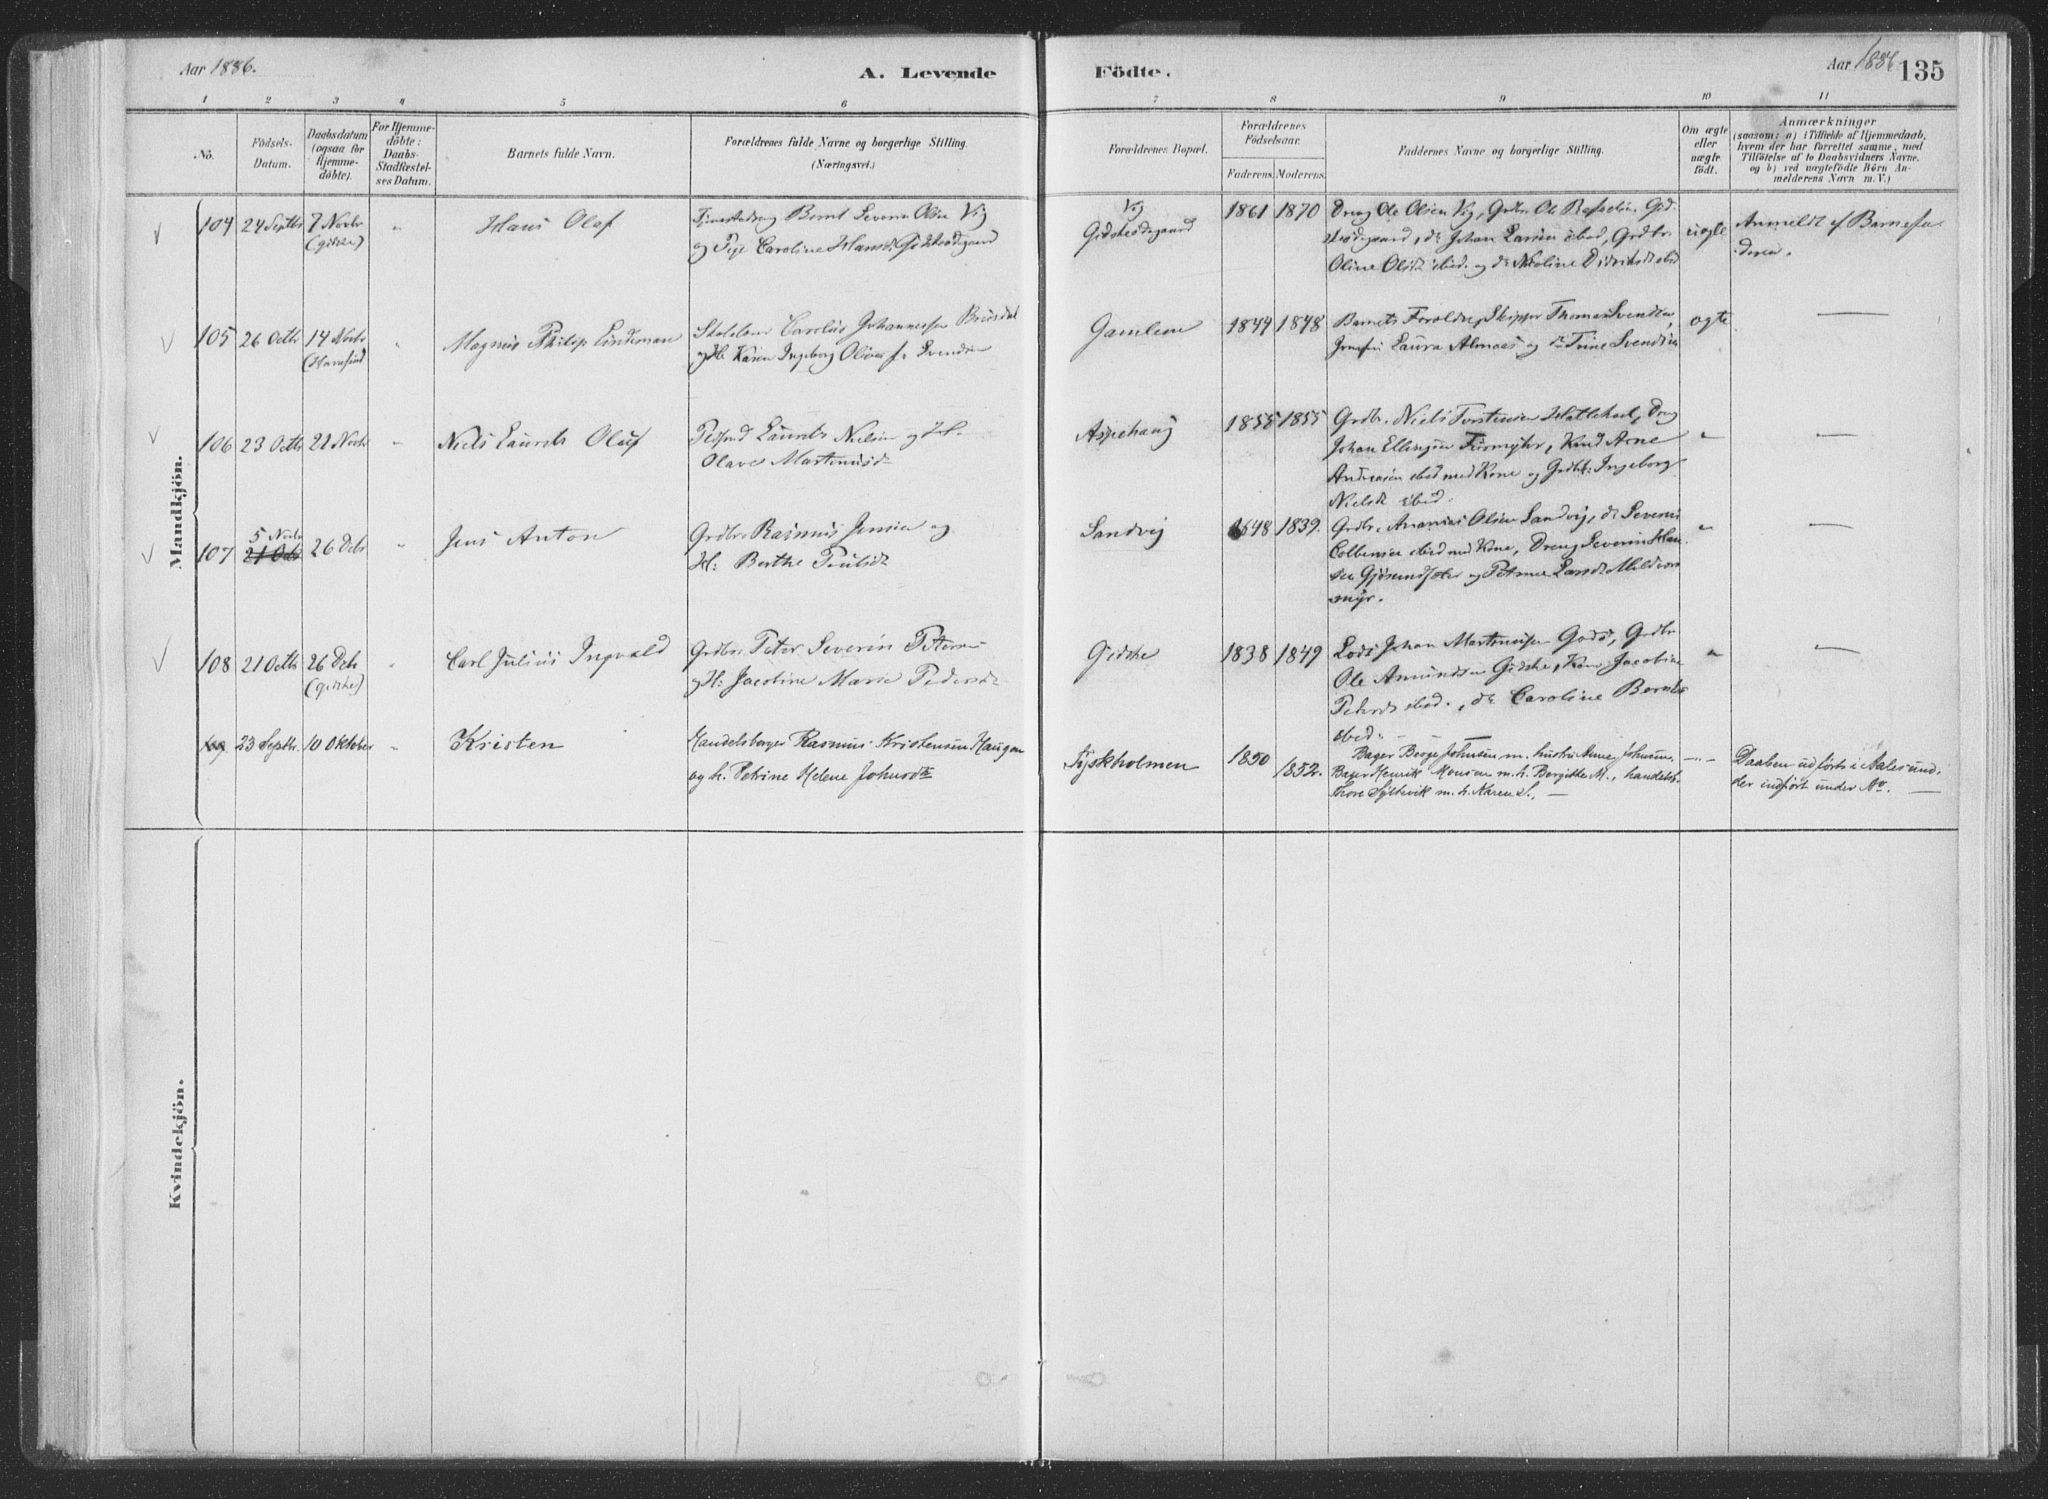 Aar 1886.
A. Levende
Födte.
Aar 1886
135
1 2 3 4 5 6 7 8 9 10 11
No.
Födsels-
Datum.
Daabsdatum
(ogsaa for
Hjemme-
döbte).
For Hjemme-
döbte:
Daabs-
Stadfæstel-
ses Datum.
Barnets fulde Navn.
Forældrenes fulde Navne og borgerlige Stilling.
(Næringsvei.)
Forældrenes Bopæl.
Forældrenes
Födselsaar.
Faderens. Moderens.
Faddernes Navne og borgerlige Stilling.
Om ægte
eller
uægte
födt.
Anmærkninger
(saasom: a) i Tilfælde af Hjemmedaab,
hvem der har forrettet samme, med
Tilföielse af to Daabsvidners Navne.
og b) ved uægtefödte Börn An-
melderens Navn m. V.)
Mandkjön.
104
24 Septbr
7 Novbr
(Giske)
"
Hans Olaf
Bernt Severin Olsen Vig
og Pige Caroline Hansd. Gidskeødegaard
Vig
Gidskeødegaard
1861 1870
Dreng Ole Olsen Vig, Grdbr. Ole Gid-
skeødegaard, do Johan Larsen ibid, Grdbr.
Oline Olsdt ibid. og do Nicoline Didriksdt ibid
uægte
Anmeldt af Barnefa-
deren.
105
26 Octbr
14 Novbr
"
Magnus Philip Lindeman
Carolus Johannessen Brusdal
og H. Karen Ingeborg Oliva f. Svendsen
Gamlem
1844 1848
Barnets Forældre, Skipper Thomas Svendsen,
Jomfru Laura Almaas og do Trine Svendsen
ægte
—
106
23 Octbr
21 Novbr
"
Niels Laurits Oluf
Laurits Nielsen og H.
Olave Martinusdt
Aspehaug
1855 1855
Grdbr. Niels Torstensen Hatlehol, Dreng
Johan Ellingsen Furmyhr, Knud Arne
Andreasen ibid med Kone og Grdbr. Ingeborg
Nielsdt ibid.
"
—
107
5 Novbr
21 Octr
26 Debr
"
Jens Anton
Grdbr. Rasmus Jensen og
H. Berthe Poulsdt
Sandvig
1848 1839.
Grdbr. Ananias Olsen Sandvig, do Severin
Colbensen ibid med Kone, Dreng Severin Han-
sen Gjørundster og Petrine Larsdt Mildvor-
myr.
"
—
108
21 Octbr
26 Debr
(Gidske)
"
Carl Julius Ingvald
Grdbr. Peter Severin Petersen
og H. Jacobine Marie Pedersdt
Gidske
1838 1849
Lods Johan Martinusen Godø, Grdbr.
Ole Amundsen Gidske, Kone Jacobine
Petersdt ibid., do Caroline Berntsdt
ibid.
"
—
109
23 Septbr.
10 Oktober
"
Kristen
Handelsborger Rasmus Kristensen Haugen
og h. Petrine Helene Johnsdtr
Tyskholmen
1850
1852.
Bager Berge Johnsen m. hustru Anne Johnsen,
Bager Henrik Monsen m. h. Bergitte M., handelsb.
Thore Syltevik m. h. Karen S. —
—"—
Daaben udført i Aalesund,
der indført under No. —
Kvindekjön.